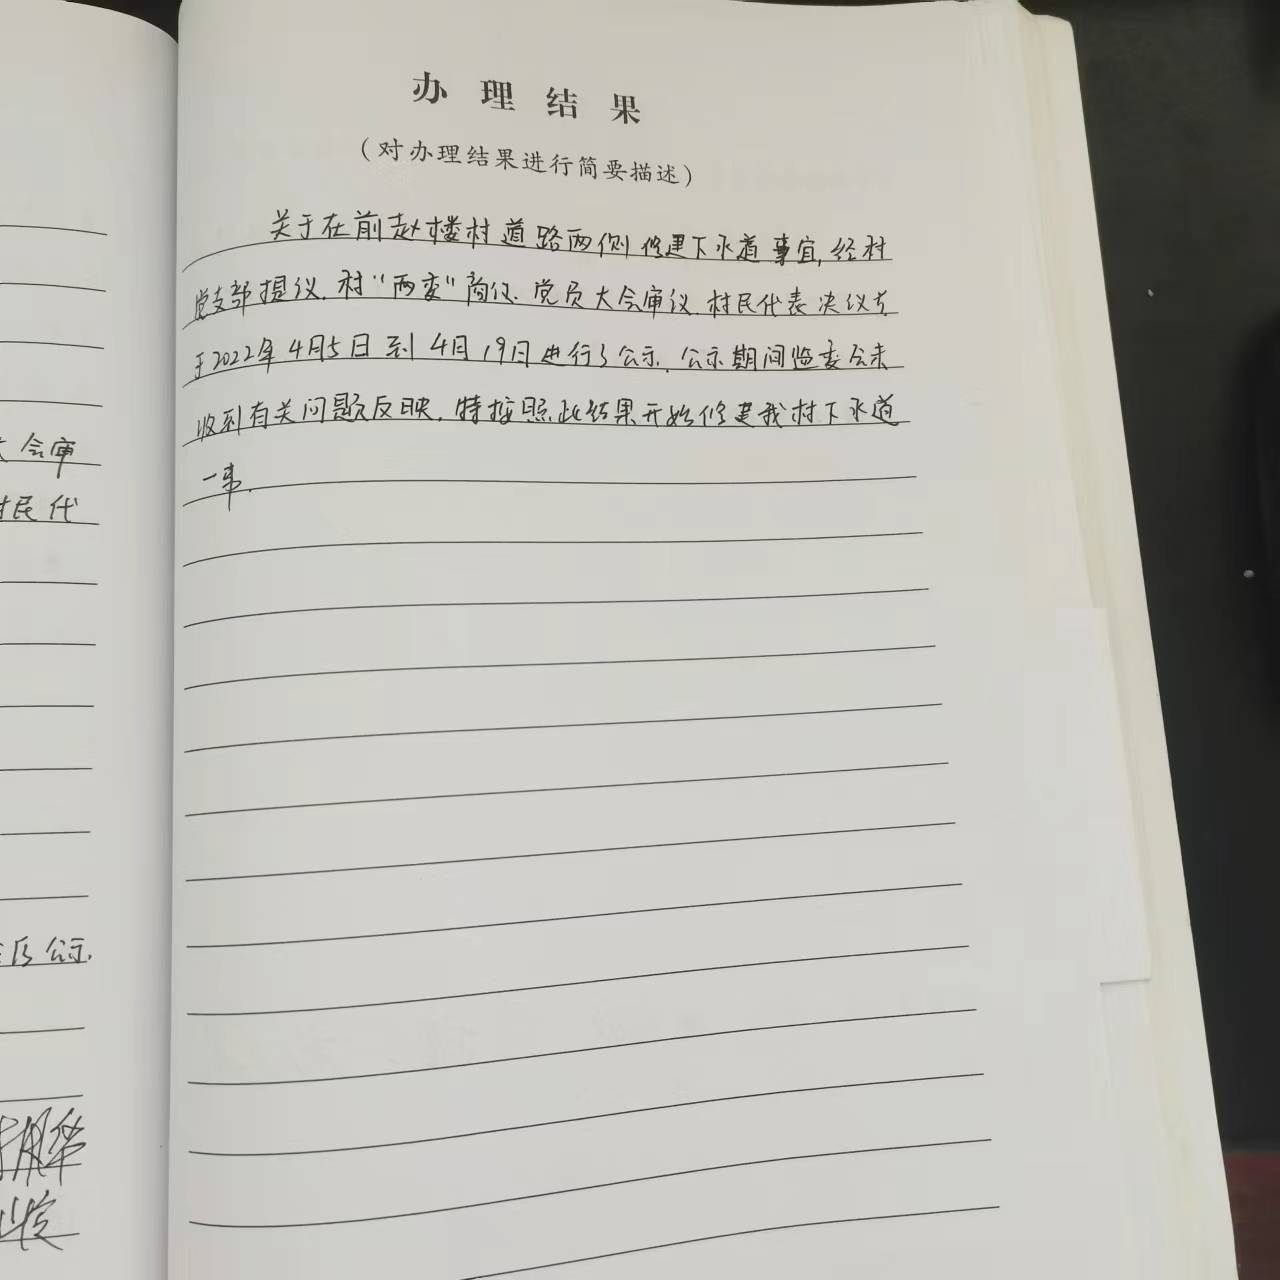 大会审
村民代
后公示.
办理结果
(对办理结果进行简要描述)
关于在前赵楼村道路两侧修建下水道事宜,经村
党支部提议.村“两委”商议.党员大会审议.村民代表决议并
于2022年4月5日到4月19日进行了公示.公示期间监委会未
收到有关问题反映.特按照此结果开始修建我村下水道
一事.